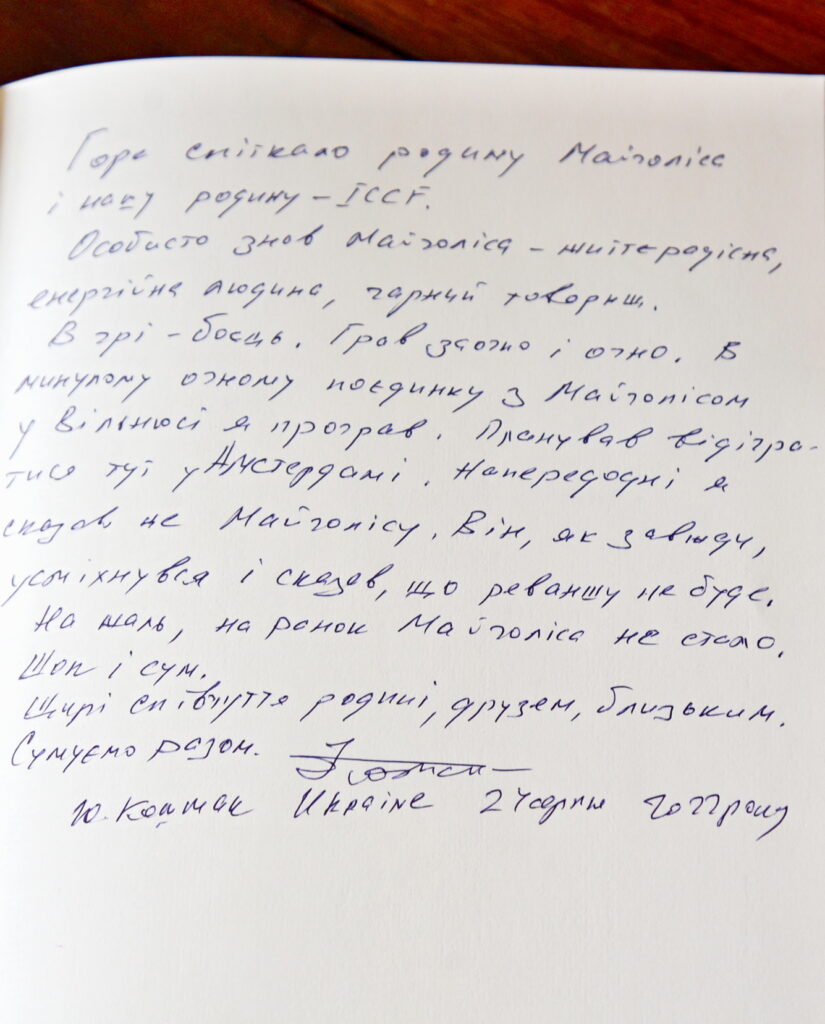 Горе спіткало родину Майголіса
і нашу родину – ICCF.
Особисто знав Майголіса – життєрадісна,
енергійна людина, гарний товариш.
В грі – боєць. Грав заочно і очно. В
минулому очному поєдинку з Майголісом
у Вільнюсі я програв. Планував відігра-
тися тут у Амстердамі. Напередодні я
сказав це Майголісу. Він, як завжди,
усміхнувся і сказав, що реваншу не буде.
На жаль, на ранок Майголіса не стало.
Шок і сум.
Щирі співчуття родині, друзям, близьким.
Сумуємо разом.
Ю. Кошмак Ukraine 24 серпня 2023 року